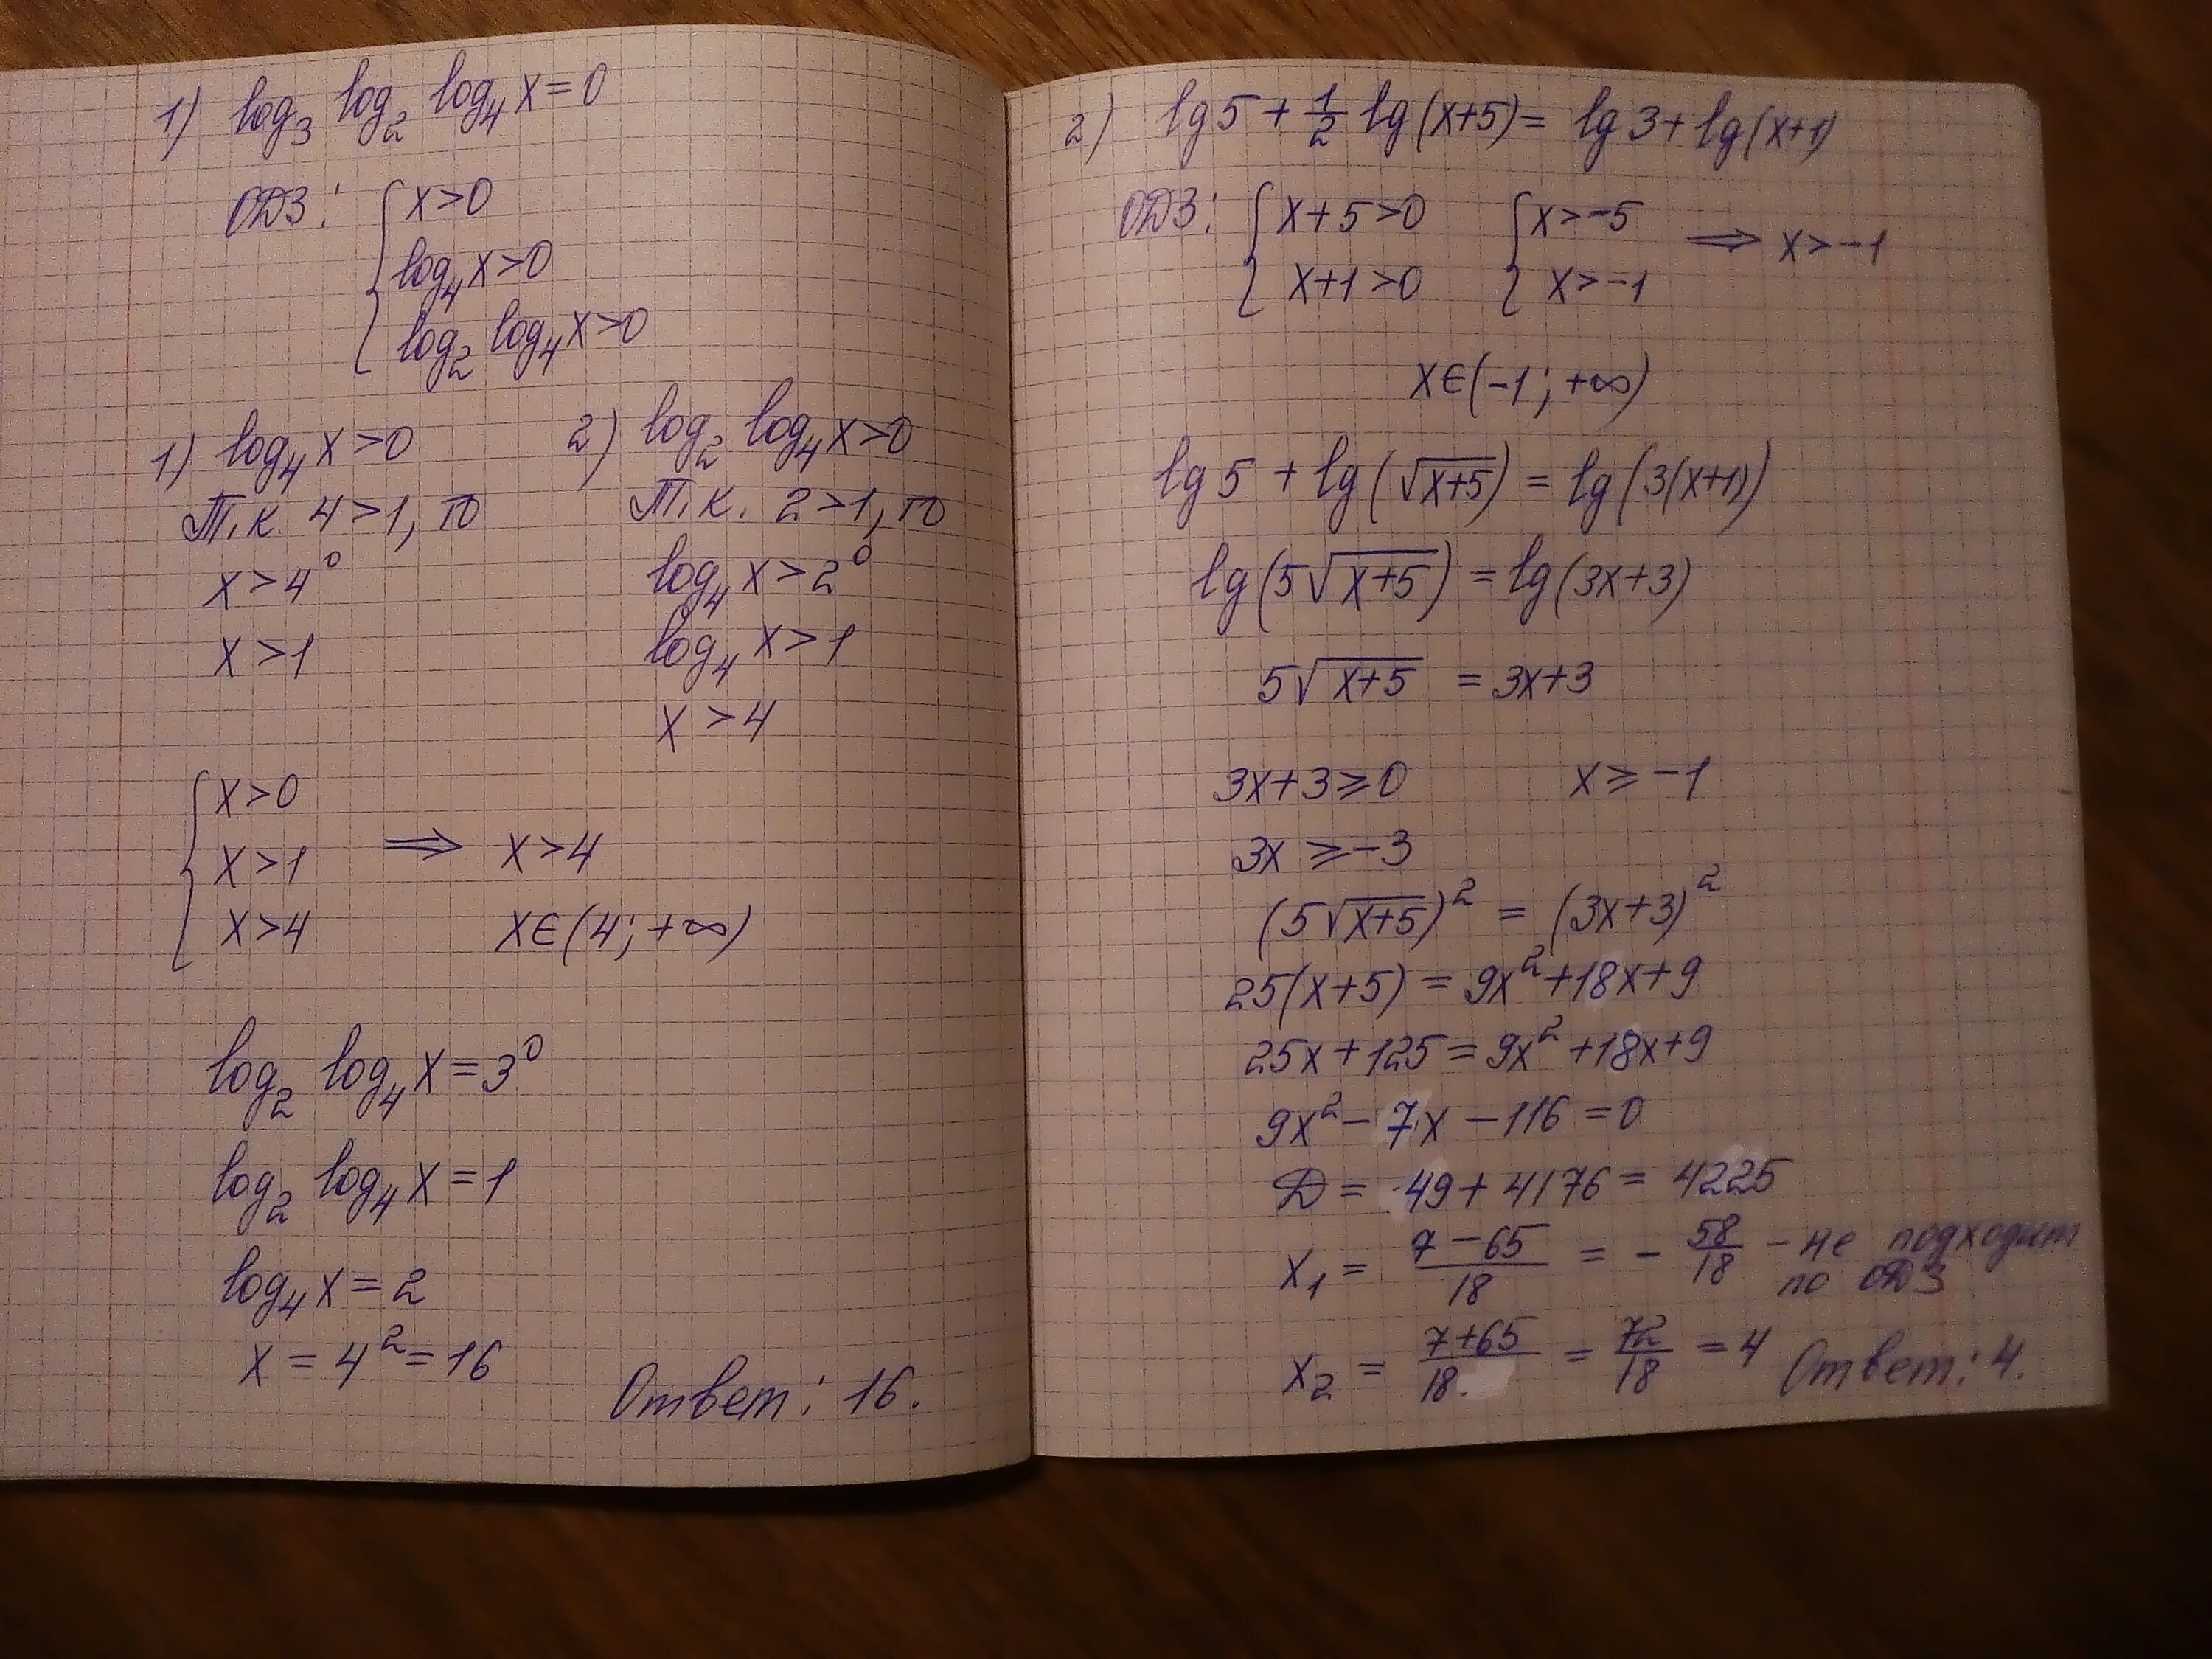 1) log₃ log₂ log₄ x = 0
ОДЗ: { x > 0
log₄ x > 0
log₂ log₄ x > 0
1) log₄ x > 0
Т.к. 4 > 1, то
x > 4⁰
x > 1
2) log₂ log₄ x > 0
Т.к. 2 > 1, то
log₄ x > 2⁰
log₄ x > 1
x > 4
{ x > 0
x > 1 ⇒ x > 4
x > 4 x ∈ (4; +∞)
log₂ log₄ x = 3⁰
log₂ log₄ x = 1
log₄ x = 2
x = 4² = 16
Ответ: 16.
2) lg 5 + 1/2 lg (x+5) = lg 3 + lg (x+1)
ОДЗ: { x + 5 > 0 { x > -5 ⇒ x > -1
x + 1 > 0 x > -1
x ∈ (-1; +∞)
lg 5 + lg (√(x+5)) = lg (3(x+1))
lg (5√(x+5)) = lg (3x+3)
5√(x+5) = 3x+3
3x+3 ≥ 0 x ≥ -1
3x ≥ -3
(5√(x+5))² = (3x+3)²
25(x+5) = 9x² + 18x + 9
25x + 125 = 9x² + 18x + 9
9x² - 7x - 116 = 0
D = 49 + 4176 = 4225
x₁ = (7 - 65)/18 = - 58/18 - не подходит
по ОДЗ
x₂ = (7+65)/18. = 72/18 = 4 Ответ: 4.